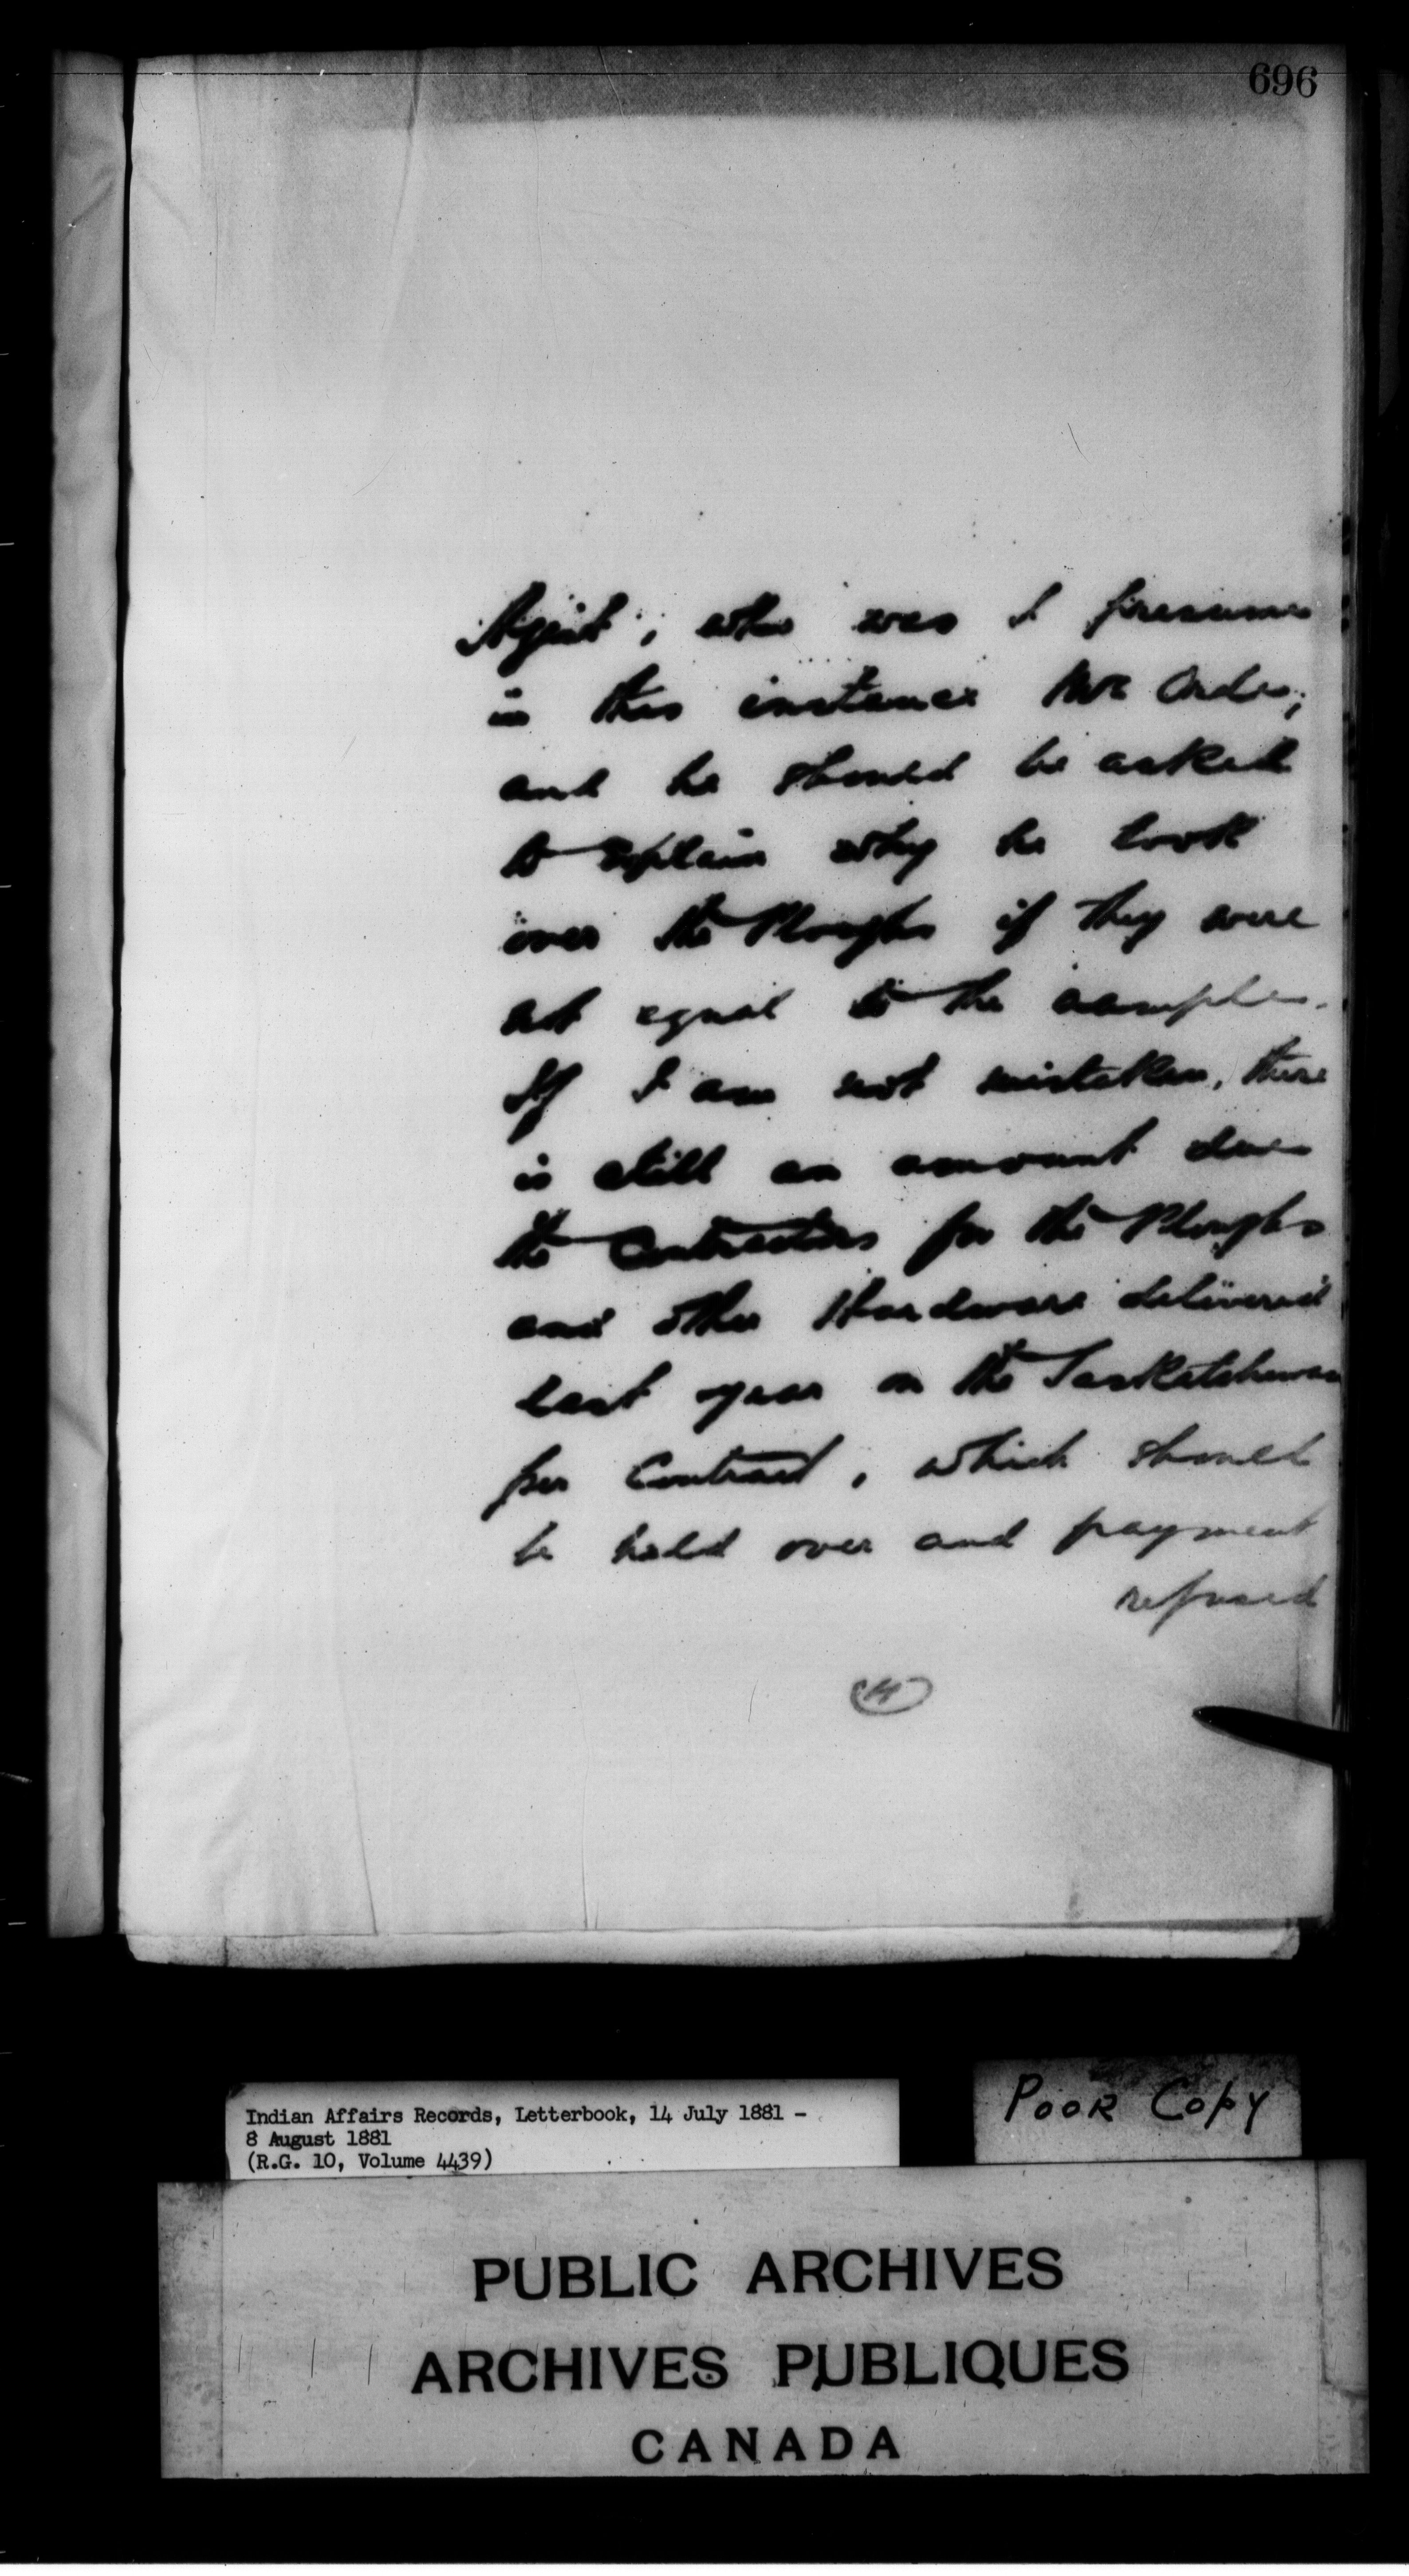 696
Agent, who was I presume
in this instance Mr Orde,
and he should be asked
to explain why he took
over the Ploughs if they were
not equal to the samples.
If I am not mistaken, there
is still an amount due
the Contractors for the Ploughs
and other Hardware delivered
last year on the Saskatchewan
per Contract, which should
be held over and payment
refused
Indian Affairs Records, Letterbook, 14 July 1881 -
8 August 1881
(R.G. 10, Volume 4439)
POOR COPY
PUBLIC ARCHIVES
ARCHIVES PUBLIQUES
CANADA